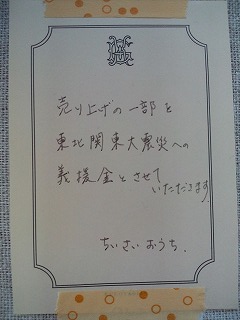 売り上げの一部を
東北関東大震災への
義援金とさせて
いただきます
ちいさいおうち.